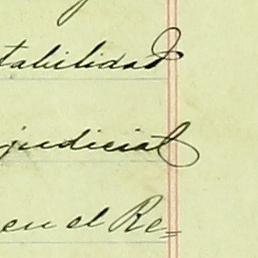 tabilidad
judicial
en el Re=